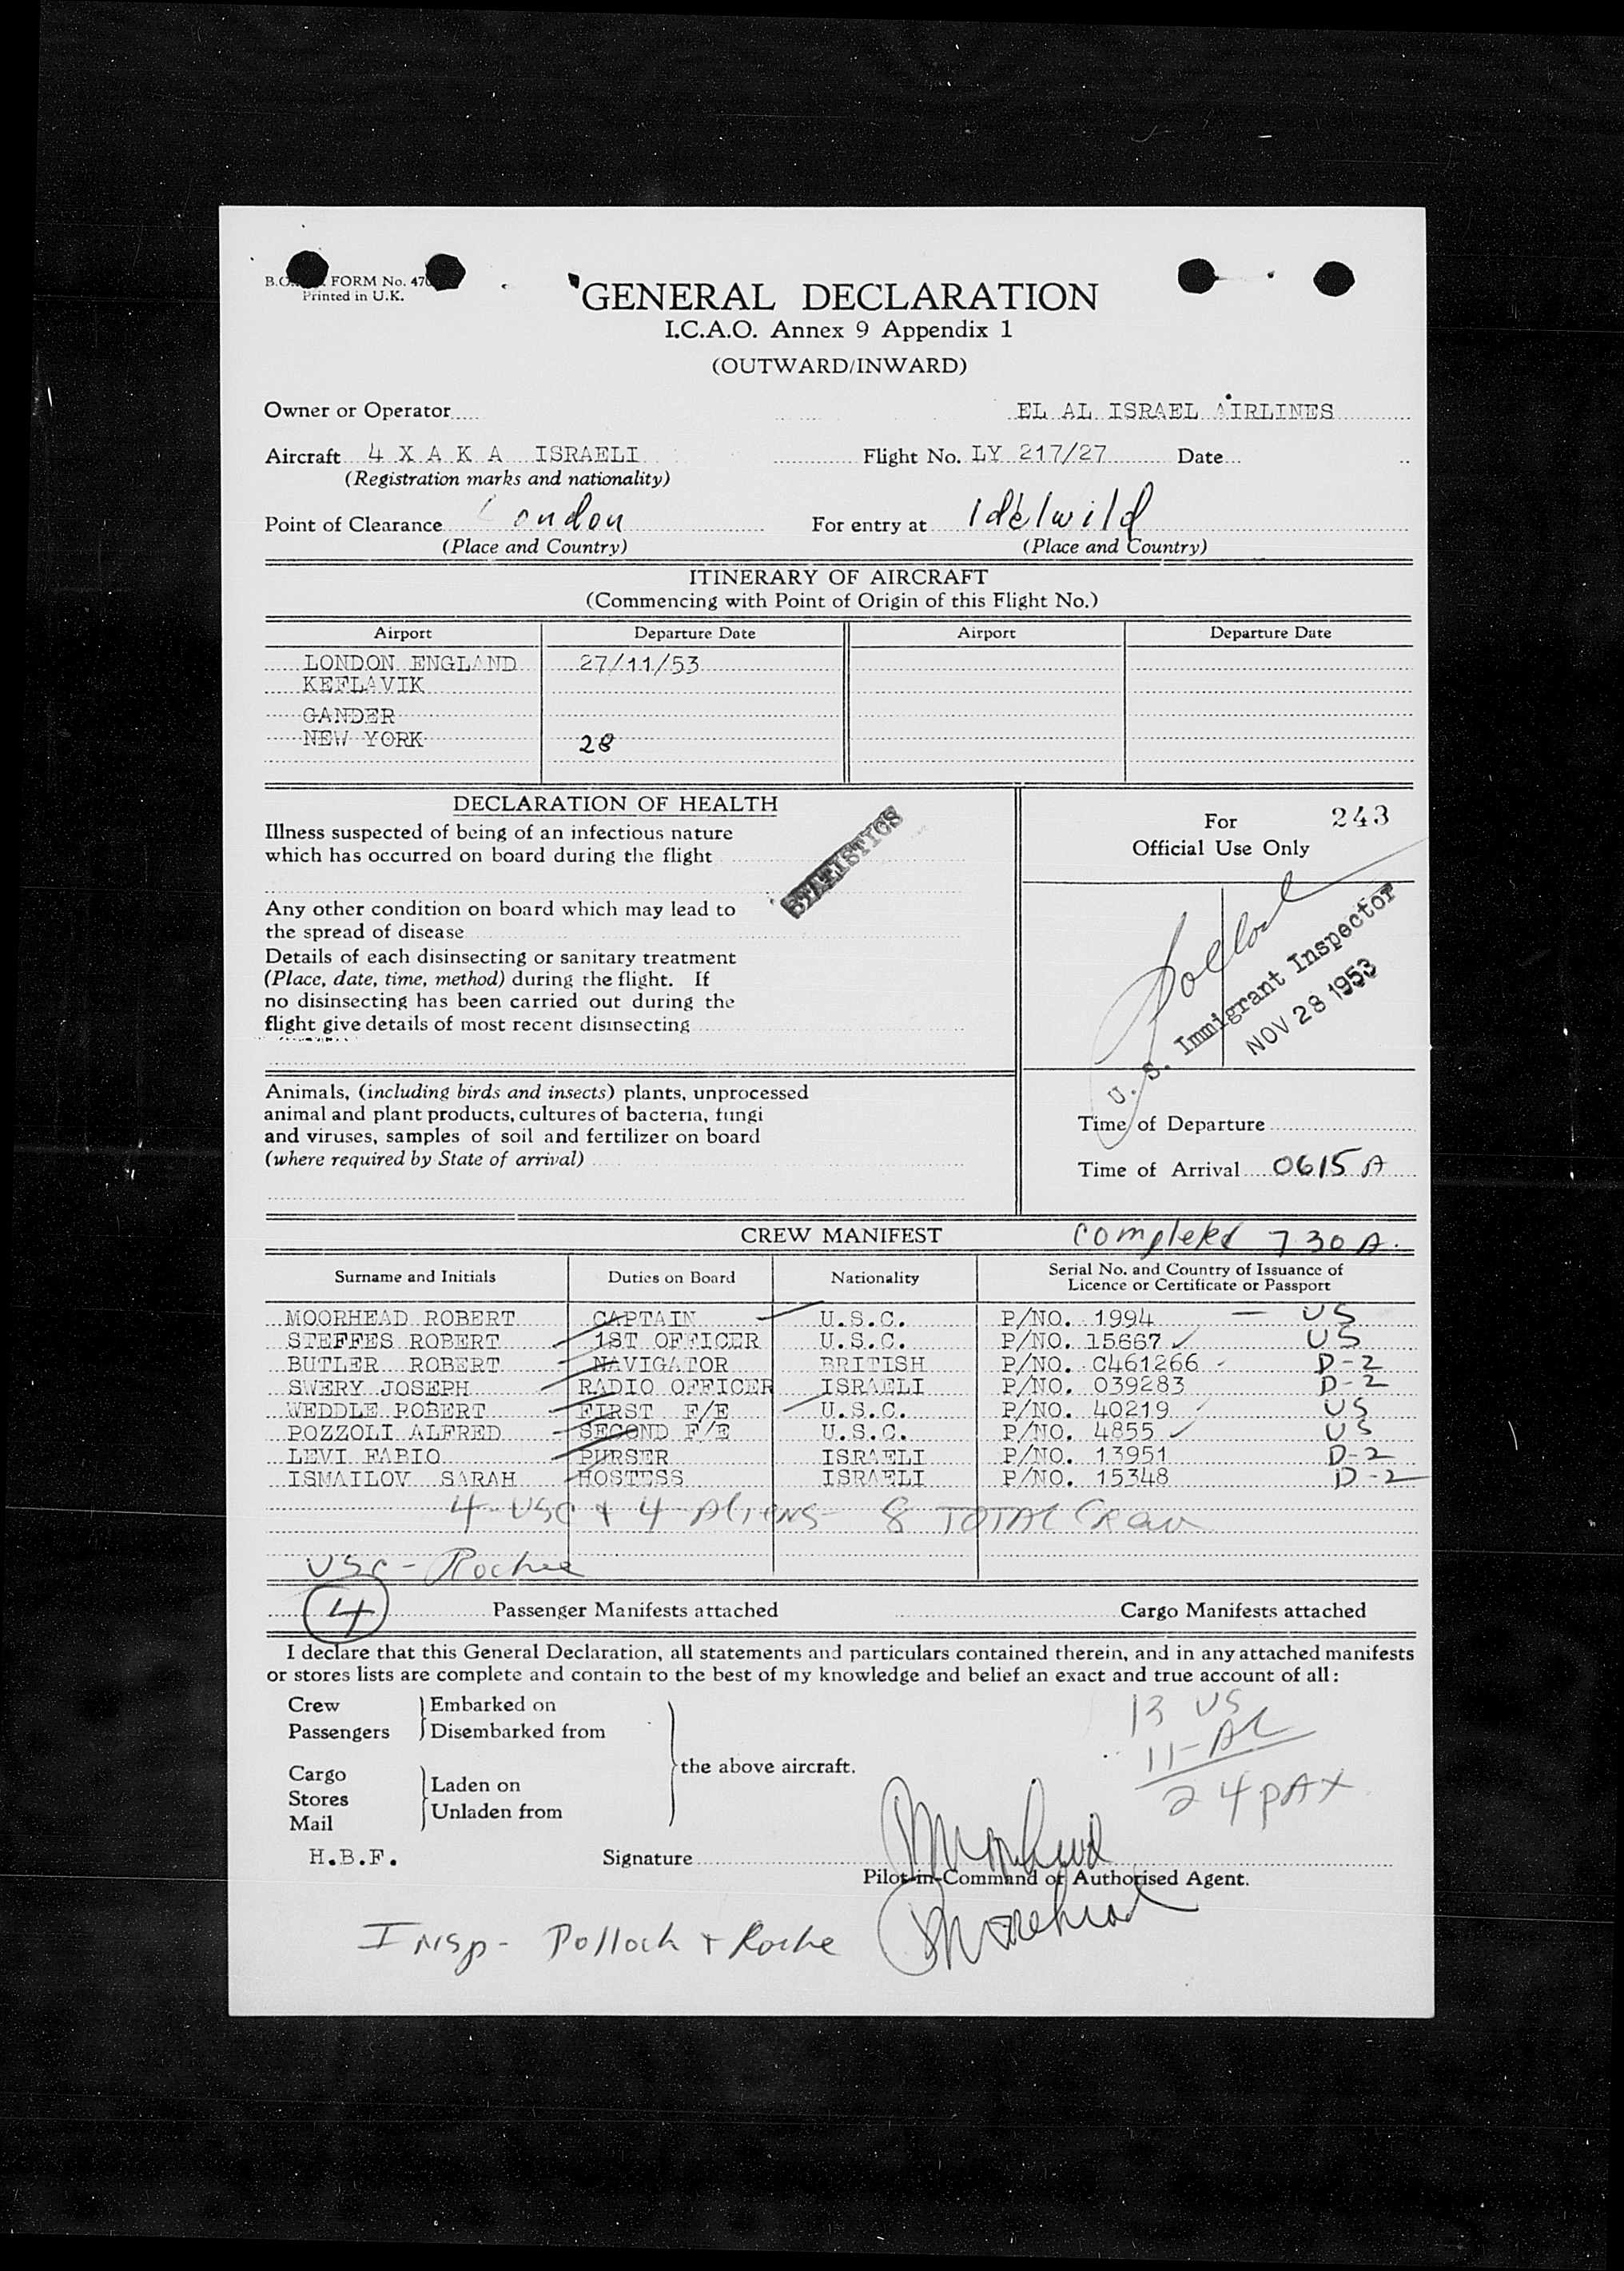 B.O. FORM No. 47
Printed in U.K.
GENERAL DECLARATION
I.C.A.O. Annex 9 Appendix 1
(OUTWARD/INWARD)
Owner or Operator EL AL ISRAEL AIRLINES
Aircraft 4 X A K A ISRAELI Flight No. LY 217/27 Date
(Registration marks and nationality)
Point of Clearance London For entry at Idelwild
(Place and Country) (Place and Country)
ITINERARY OF AIRCRAFT
(Commencing with Point of Origin of this Flight No.)
Airport Departure Date Airport Departure Date
LONDON ENGLAND 27/11/53
KEFLAVIK
GANDER
NEW YORK 28
DECLARATION OF HEALTH
Illness suspected of being of an infectious nature
which has occurred on board during the flight
STATISTICS
Any other condition on board which may lead to
the spread of disease
Details of each disinsecting or sanitary treatment
(Place, date, time, method) during the flight. If
no disinsecting has been carried out during the
flight give details of most recent disinsecting
Animals, (including birds and insects) plants, unprocessed
animal and plant products, cultures of bacteria, fungi
and viruses, samples of soil and fertilizer on board
(where required by State of arrival)
For 243
Official Use Only
Pollock
U. S. Immigrant Inspector
NOV 28 1953
Time of Departure
Time of Arrival 0615 A
CREW MANIFEST completed 730 A.
Surname and Initials Duties on Board Nationality Serial No. and Country of Issuance of
Licence or Certificate or Passport
MOORHEAD ROBERT CAPTAIN U.S.C. P/NO. 1994 — US
STEFFES ROBERT 1ST OFFICER U.S.C. P/NO. 15667 ✓ US
BUTLER ROBERT NAVIGATOR BRITISH P/NO. C461266 D-2
SWERY JOSEPH RADIO OFFICER ISRAELI P/NO. 039283 D-2
WEDDLE ROBERT FIRST F/E U.S.C. P/NO. 40219 ✓ US
POZZOLI ALFRED SECOND F/E U.S.C. P/NO. 4855 ✓ US
LEVI FABIO PURSER ISRAELI P/NO. 13951 D-2
ISMAILOV SARAH HOSTESS ISRAELI P/NO. 15348 D-2
4-USC + 4-Aliens- 8 TOTAL Crew
USC - Roche
4 Passenger Manifests attached Cargo Manifests attached
I declare that this General Declaration, all statements and particulars contained therein, and in any attached manifests
or stores lists are complete and contain to the best of my knowledge and belief an exact and true account of all:
Crew Embarked on
Passengers Disembarked from
the above aircraft.
Cargo
Stores Laden on
Mail Unladen from
13 US
11-AL
24 PAX
H.B.F. Signature R Moorhead
Pilot-in-Command or Authorised Agent.
R Moorehead
Insp- Pollock + Roche